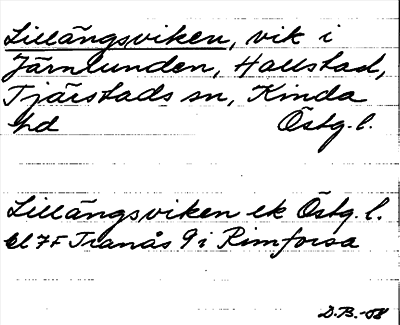 Lillängsviken, vik i
Järnlunden, Hallstad,
Tjärstads sn, Kinda
hd Östg. l.
Lillängsviken ek Östg. l.
bl 7F Tranås 9 i Rimforsa
D.B.-08